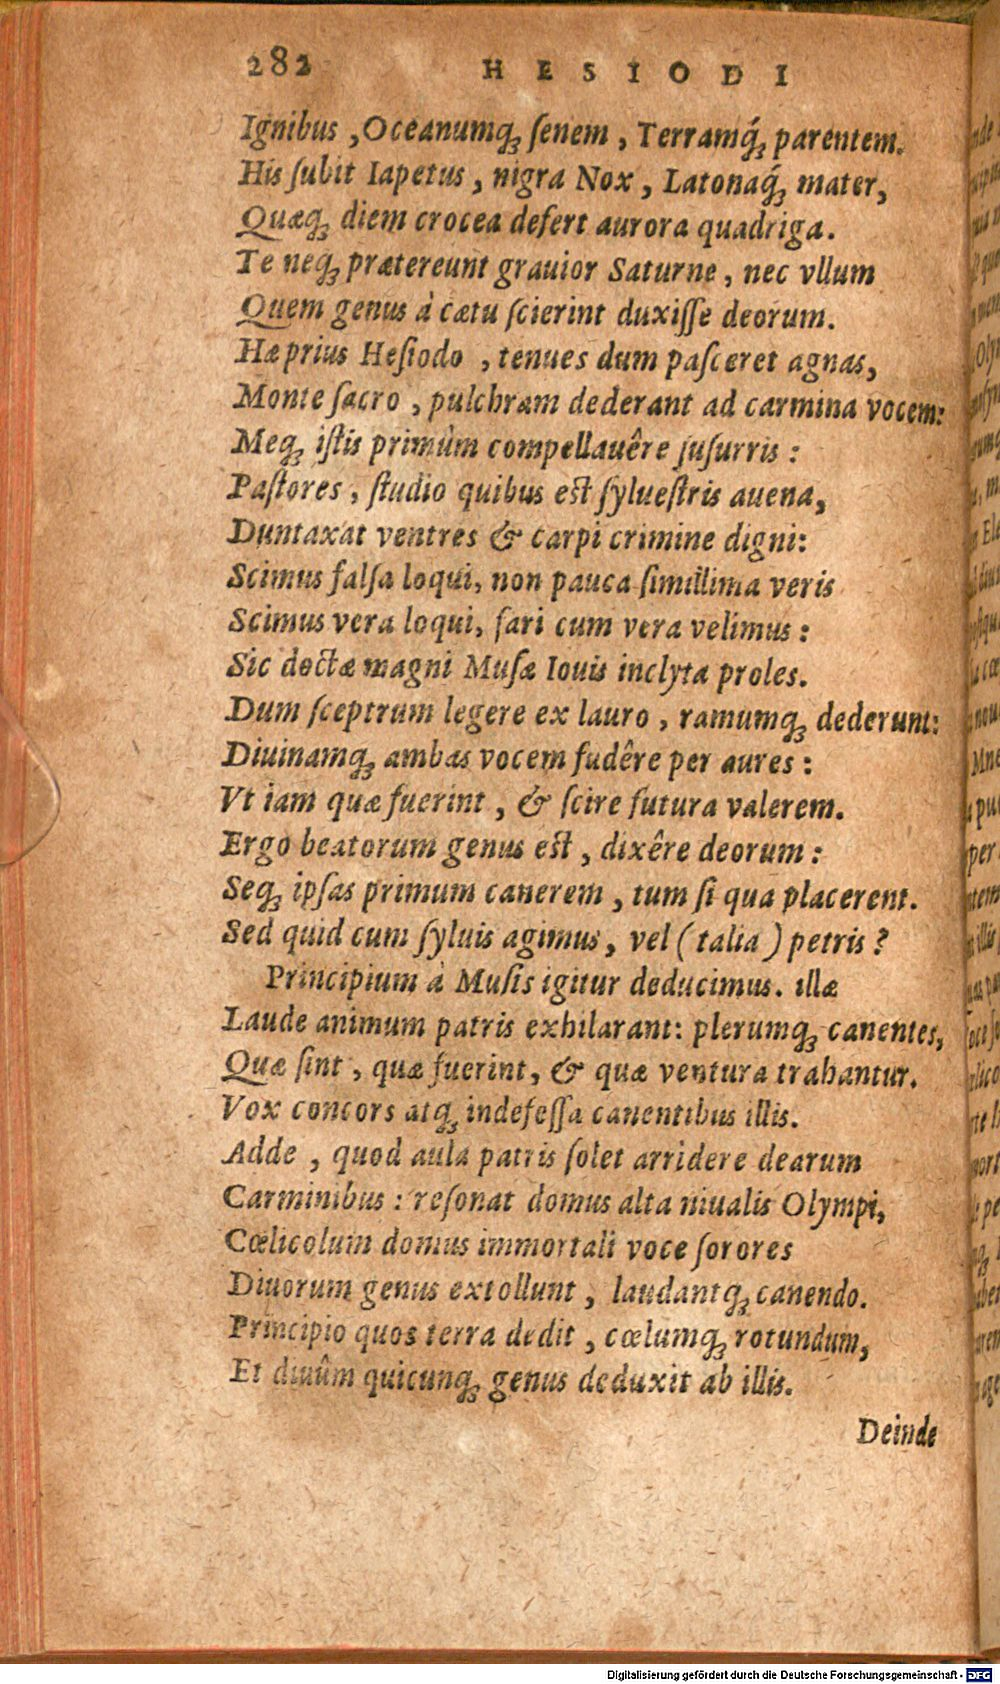 282 HESIODI
Ignibus, Oceanumq́; ſenem, Terramq́; parentem.
His ſubit Iapetus, nigra Nox, Latonaq́; mater,
Quæq; diem crocea defert aurora quadriga.
Te neq; prætereunt grauior Saturne, nec vllum
Quem genus à cætu ſcierint duxiſſe deorum.
Hæ prius Heſiodo, tenues dum paſceret agnas,
Monte ſacro, pulchram dederant ad carmina vocem:
Meq; iſtis primùm compellauêre ſuſurris:
Paſtores, ſtudio quibus eſt ſylueſtris auena,
Duntaxat ventres & carpi crimine digni:
Scimus falſa loqui, non pauca ſimillima veris
Scimus vera loqui, fari cum vera velimus:
Sic doctæ magni Muſæ Iouis inclyta proles.
Dum ſceptrum legere ex lauro, ramumq; dederunt:
Diuinamq; ambas vocem fudêre per aures:
Vt iam quæ fuerint, & ſcire futura valerem.
Ergo beatorum genus eſt, dixêre deorum:
Seq; ipſas primum canerem, tum ſi qua placerent.
Sed quid cum ſyluis agimus, vel (talia) petris?
Principium à Muſis igitur deducimus. illæ
Laude animum patris exhilarant: plerumq; canentes,
Quæ ſint, quæ fuerint, & quæ ventura trahantur.
Vox concors atq; indefeſſa canentibus illis.
Adde, quod aula patris ſolet arridere dearum
Carminibus: reſonat domus alta niualis Olympi,
Cœlicolum domus immortali voce ſorores
Diuorum genus extollunt, laudantq; canendo.
Principio quos terra dedit, cœlumq; rotundum,
Et diuûm quicunq; genus deduxit ab illis.
Deinde
Digitalisierung gefördert durch die Deutsche Forschungsgemeinschaft - DFG